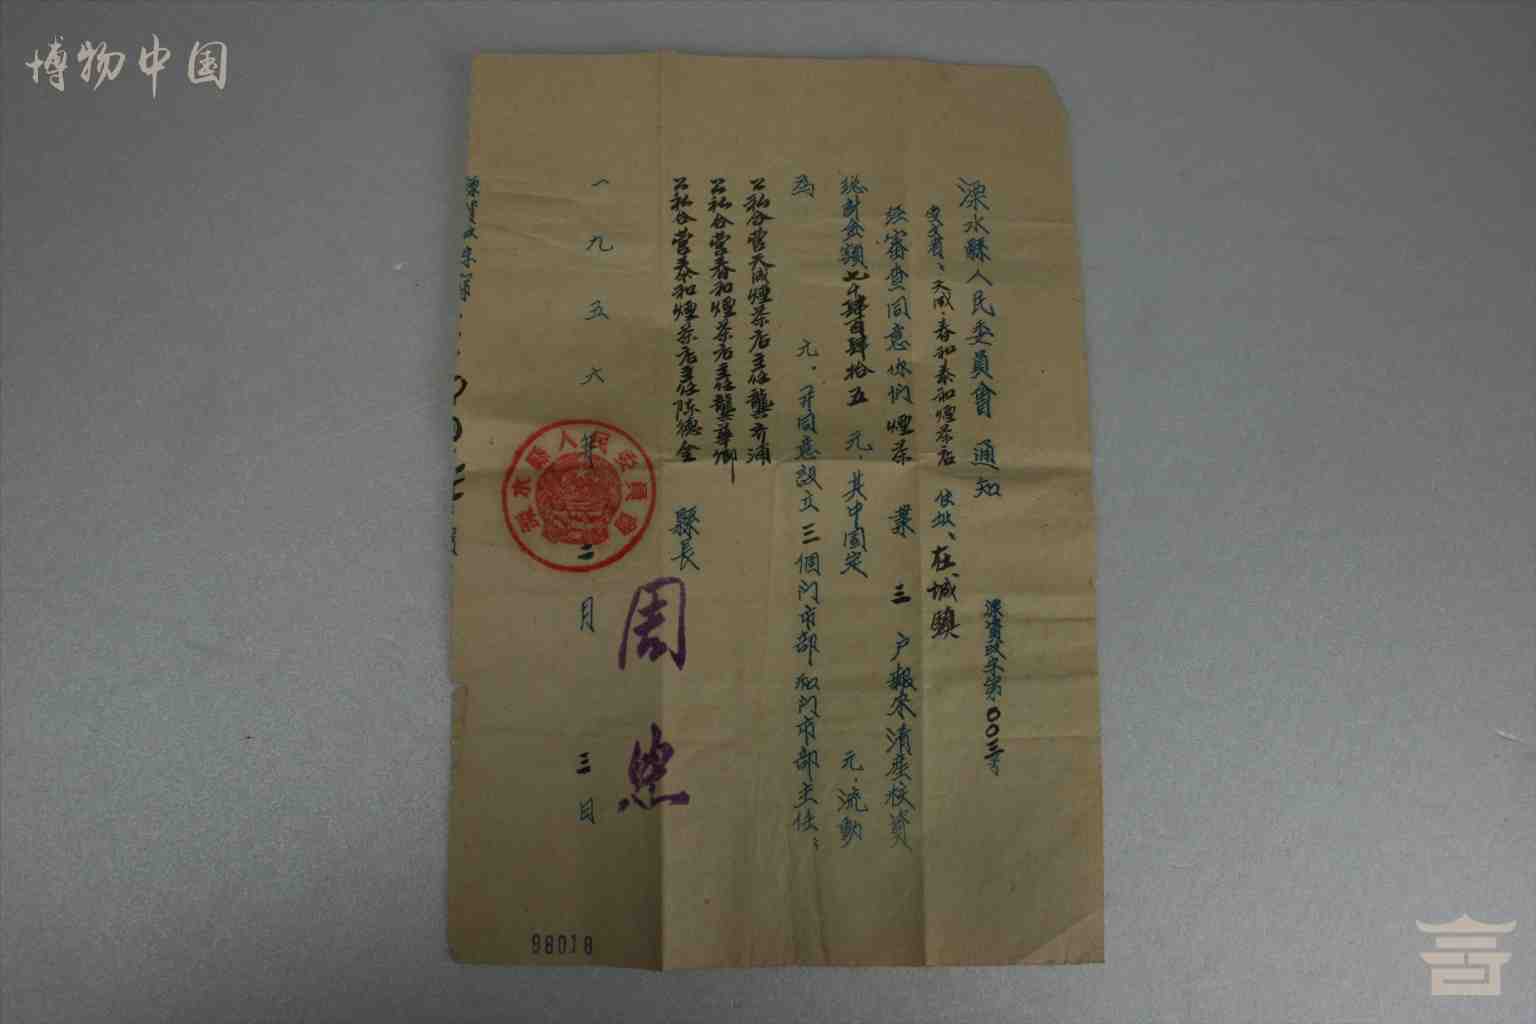 博物中国
溧水縣人民委員會 通知
溧資改字第003号
受文者、天成、春和泰和煙茶店 住址、在城鎮
经審查同意你們煙茶 業 三 户報來清產核資
總計金額七千肆百肆拾五 元,其中固定 元,流動
為 元,并同意設立三個门市部和门市部主任:
公私合营天成煙茶店主任龔齐浦
公私合营春和煙茶店主任龔華卿
公私合营泰和煙茶店主任陈德全
縣長 周
一九五六年二月三日
溧水縣人民委員會
溧資改字第
98018